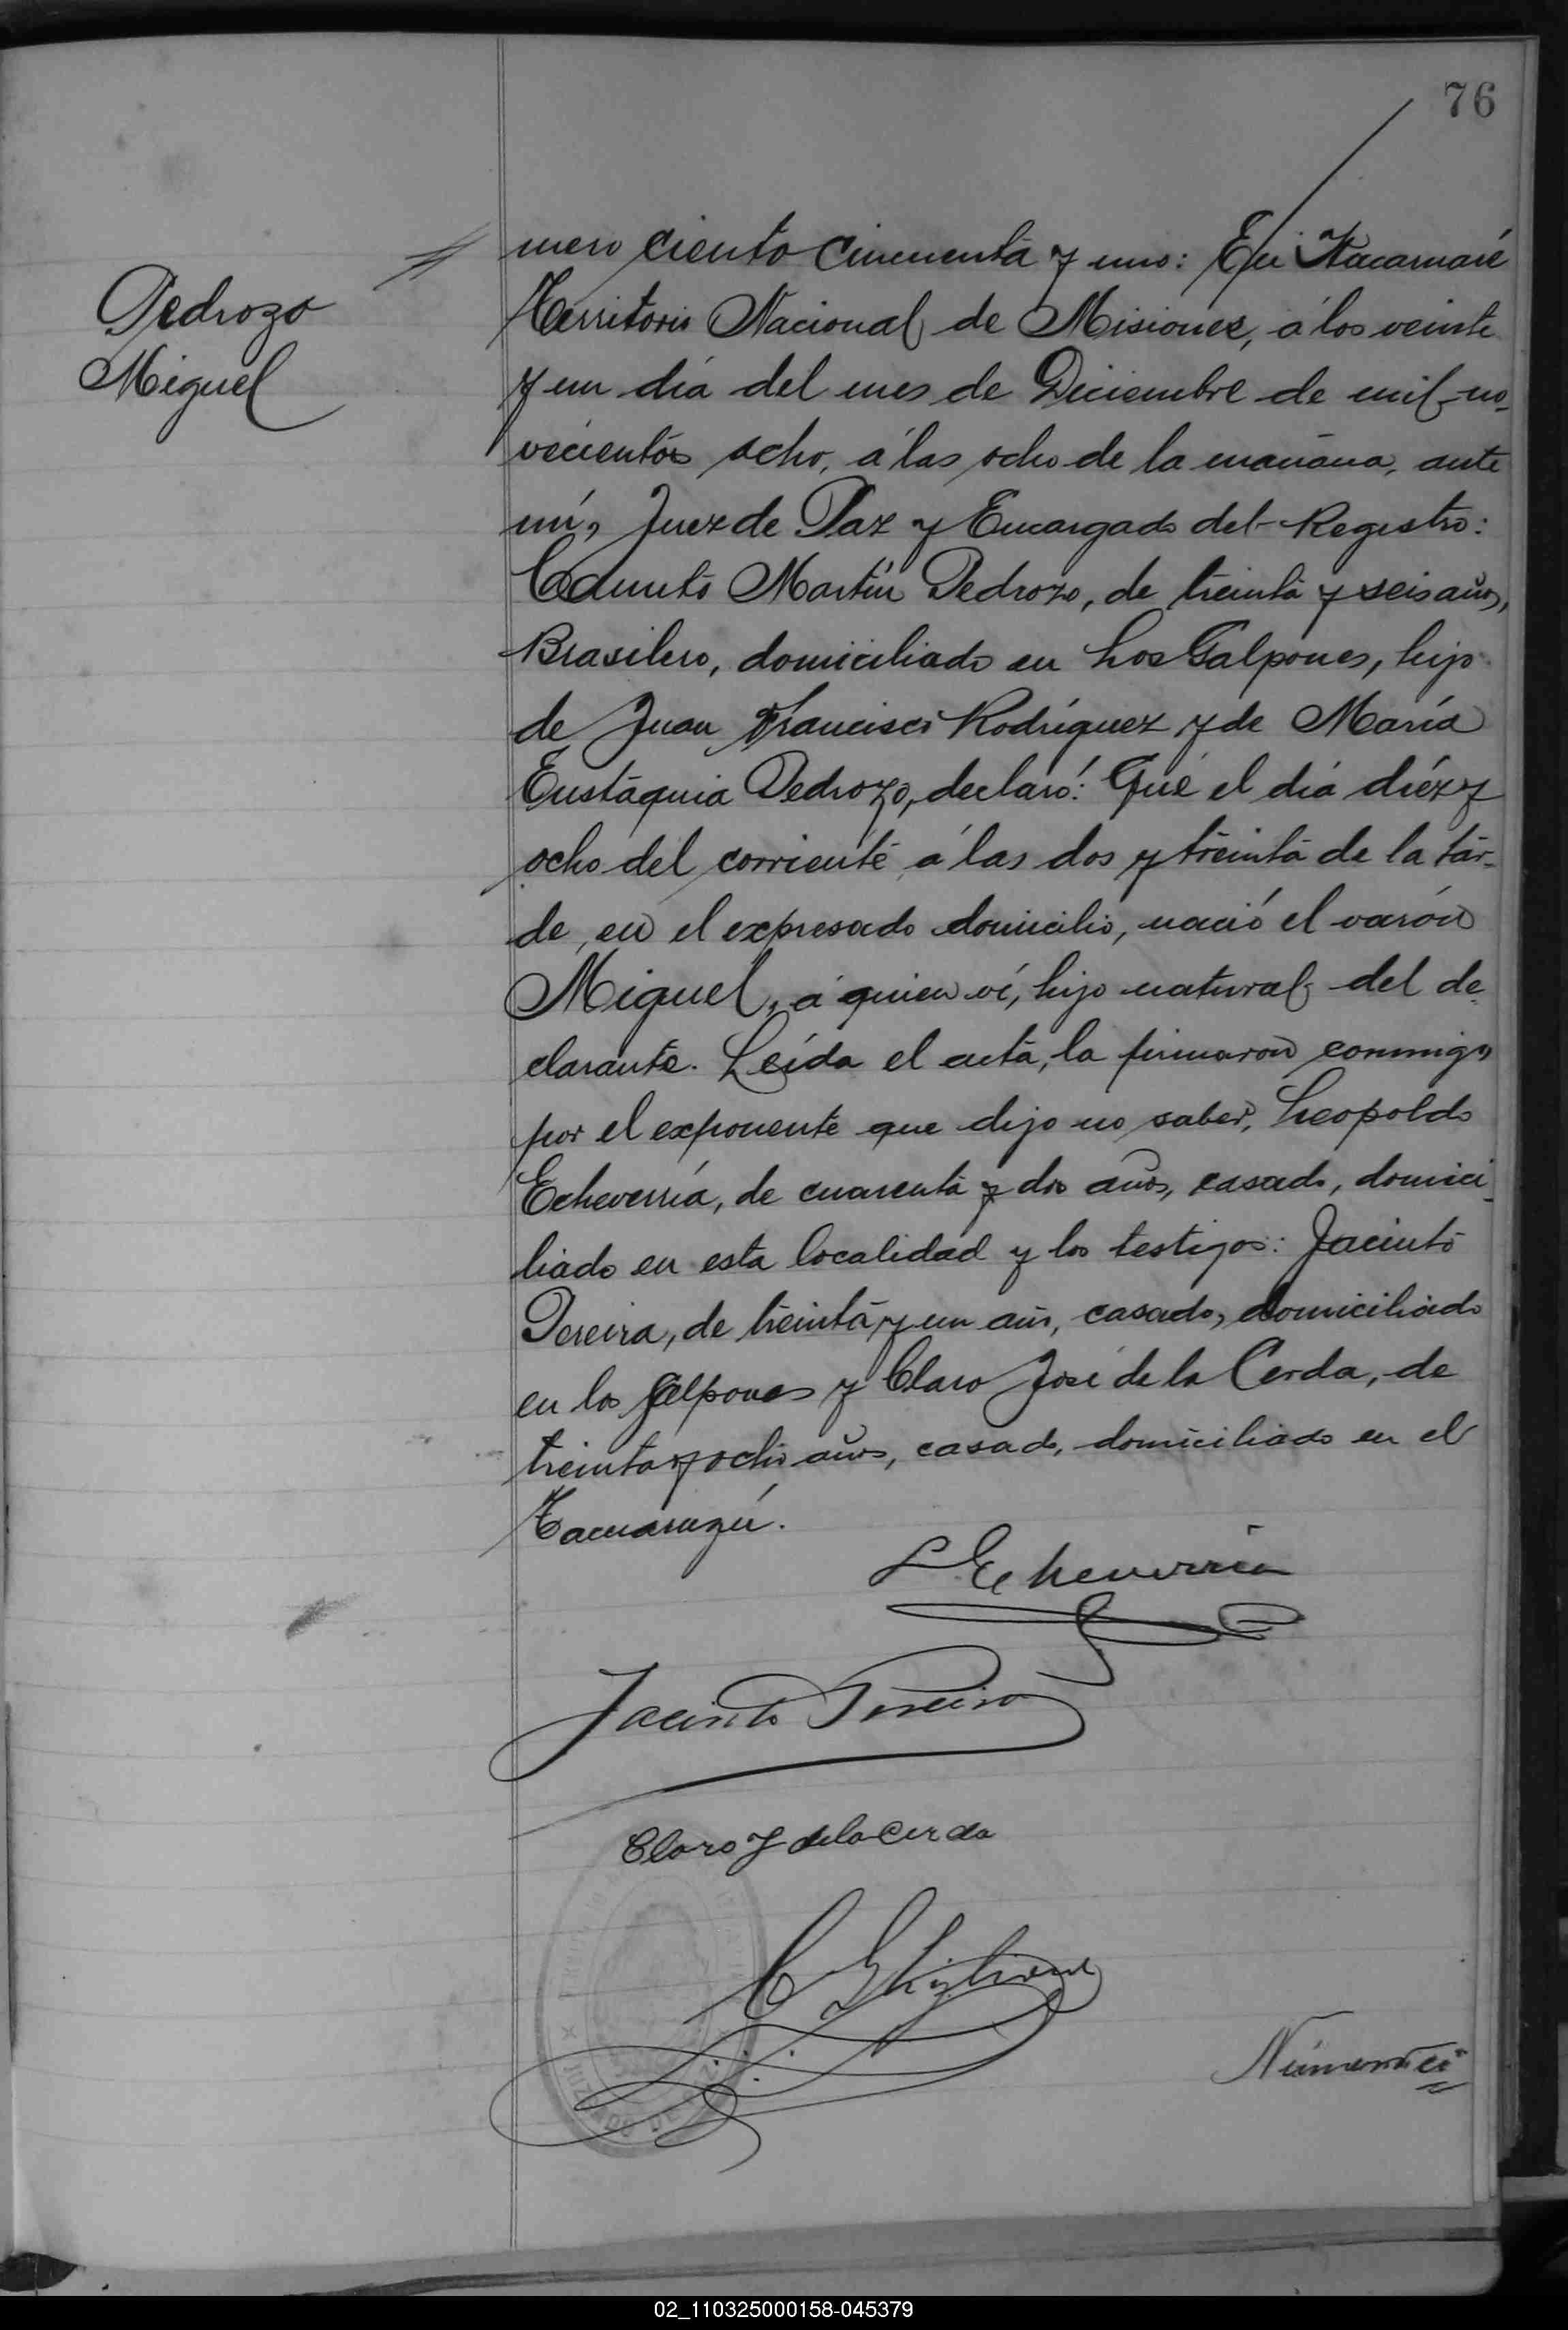 76
Pedrozo
Miguel
mero ciento cincuenta y uno: En Itacaruaré
Territorio Nacional de Misiones, á los veinte
y un día del mes de Diciembre de mil no-
vecientos ocho, á las ocho de la mañana, ante
mí, Juez de Paz y Encargado del Registro:
Martín Pedrozo, de treinta y seis años,
Brasilero, domiciliado en Los Galpones, hijo
de Juan Francisco Rodríguez y de María
Eustáquia Pedrozo, declaró: Que el día diéz y
ocho del corriente á las dos y treinta de la tar-
de, en el expresado domicilio, nació el varón
Miguel, á quien ví, hijo natural del de-
clarante. Leída el acta, la firmaron conmigo
por el exponente que dijo no saber, Leopoldo
Echeverría, de cuarenta y dos años, casado, domici-
liado en esta localidad y los testigos: Jacinto
Pereira, de treinta y un año, casado, domiciliado
en los Galpones y Claro José de la Cerda, de
treinta y ocho años, casado, domiciliado en el
Tacuaruzú.
L Echeverria
Jacinto Pereira
Claro J de la Cerda
JUZGADO DE PAZ
02_110325000158-045379